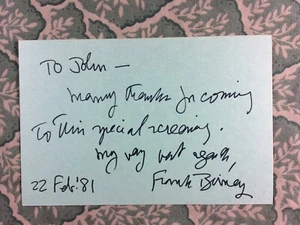 To John —
many thanks for coming
to this special screening.
my very best regards,
22 Feb. '81 Frank Binney